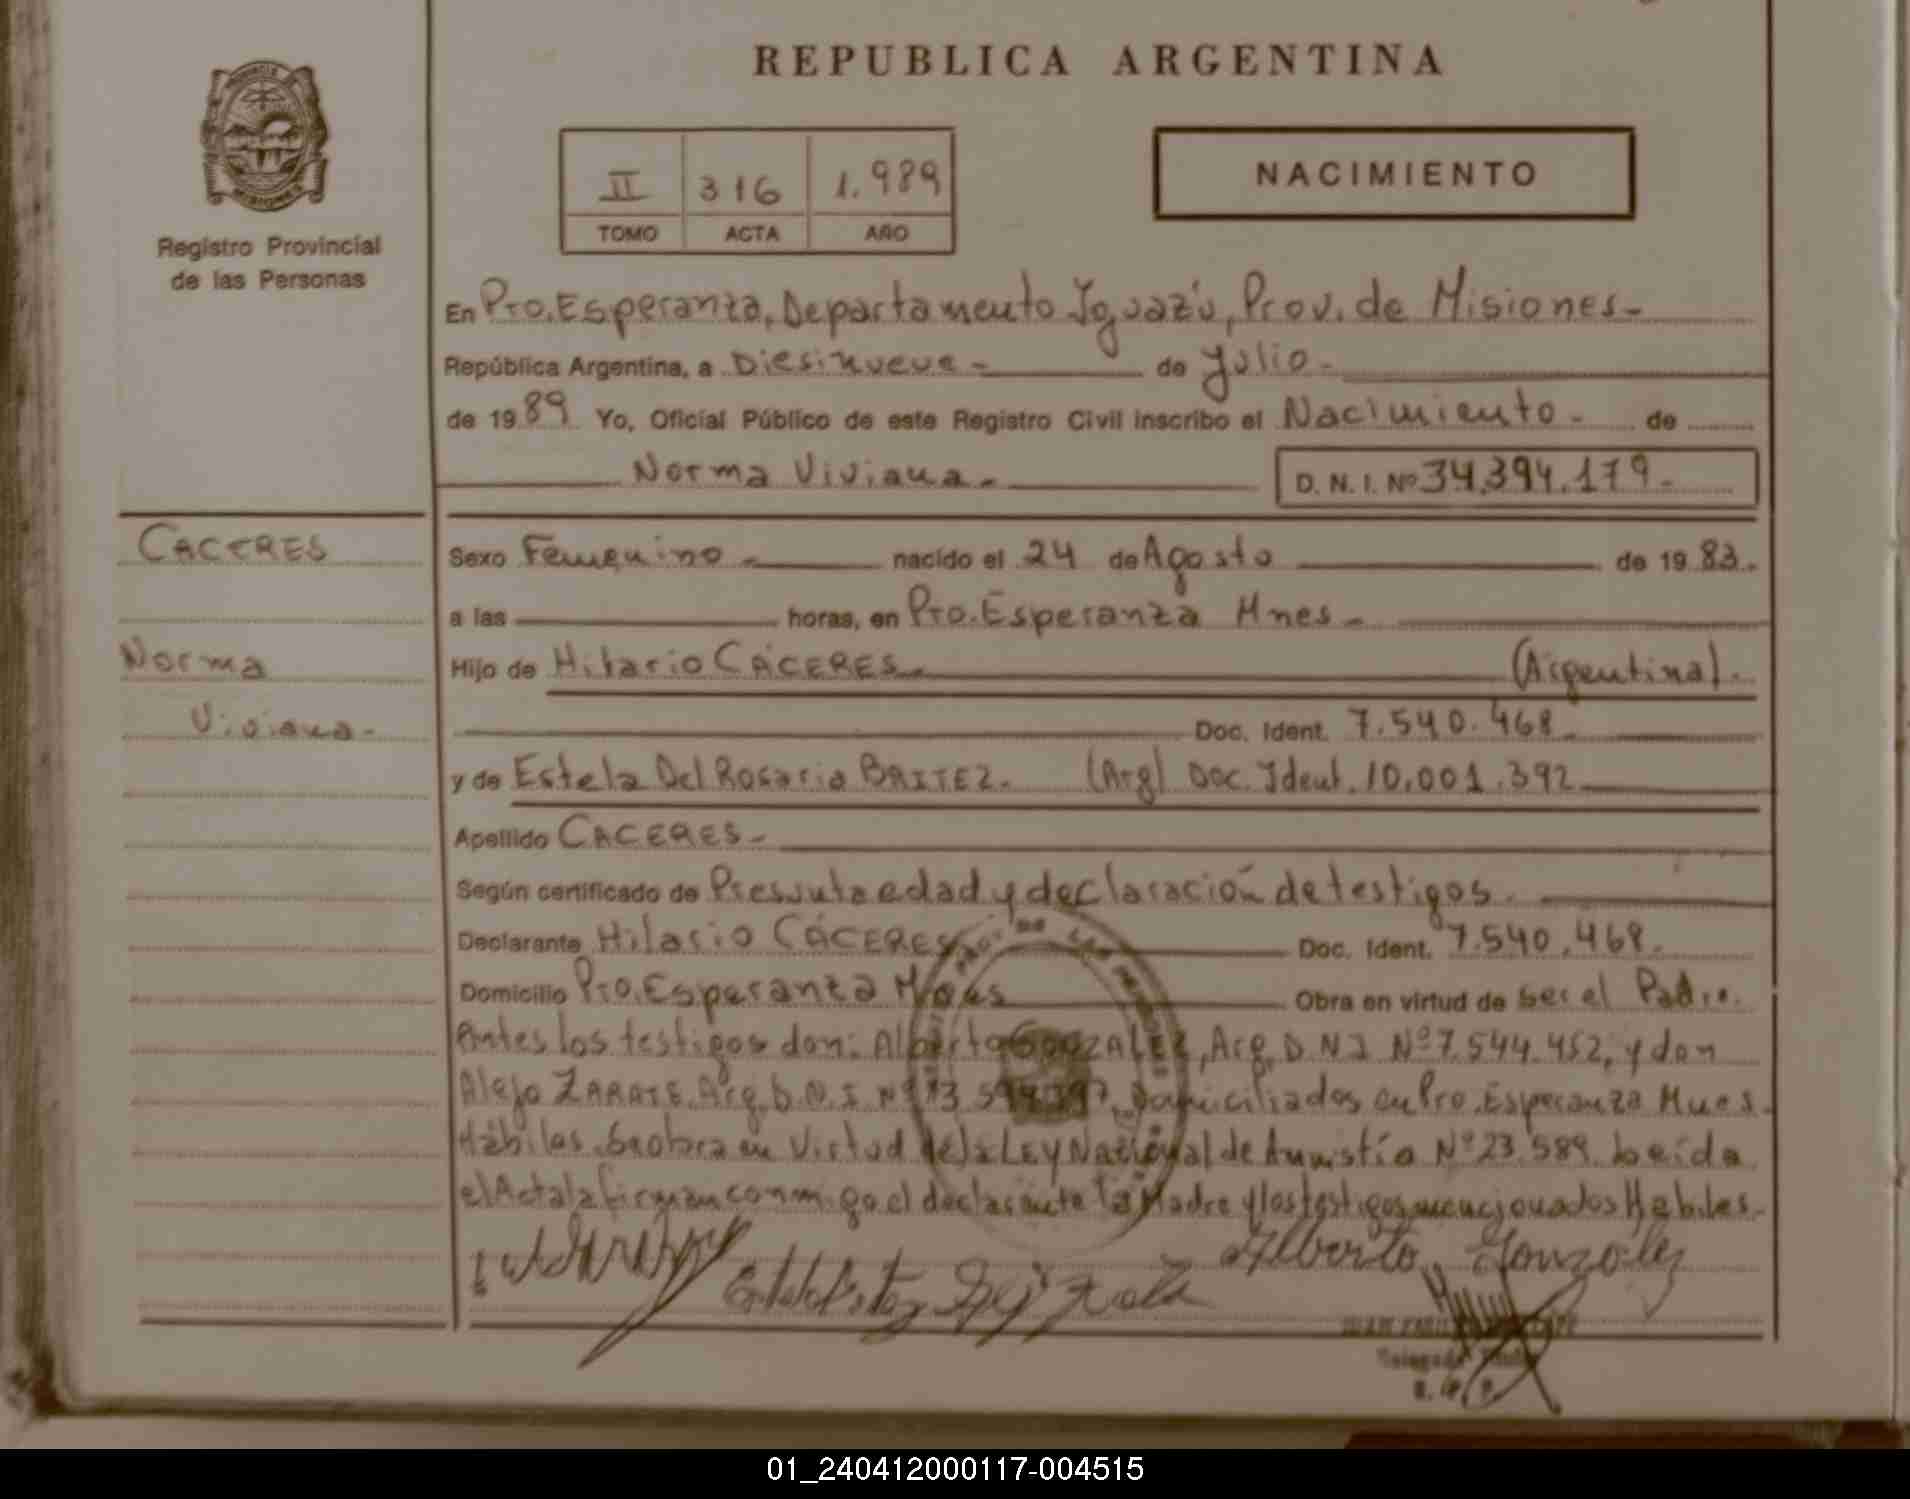 REPUBLICA ARGENTINA
II 316 1.989
TOMO ACTA AÑO
NACIMIENTO
Registro Provincial
de las Personas
En Pto. Esperanza, Departamento Iguazú, Prov. de Misiones-
República Argentina, a Diesinueve - de Julio -
de 1989 Yo, Oficial Público de este Registro Civil inscribo el Nacimiento - de
Norma Viviana - D. N. I. Nº 34.394.179.-
CACERES
Norma
Viviana-
Sexo Femenino - nacido el 24 de Agosto de 1983.
a las horas, en Pto. Esperanza Mnes -
Hijo de Hilario CÁCERES (Argentina).
Doc. Ident. 7.540.468
y de Estela Del Rosario BRITEZ. (Arg) Doc. Ident. 10.001.392
Apellido CACERES-
Según certificado de edad y declaración de testigos.
Declarante Hilario CÁCERES Doc. Ident. 7.540.468.
Domicilio Pto. Esperanza Mnes Obra en virtud de ser el Padre.
Antes los testigos don: Alberto GONZALEZ, Arg. D.N.I Nº 7.544.452, y don
Alejo ZARATE. Arg. D.N.I Nº Domiciliados en Pto. Esperanza Mnes.
Hábiles. Se obra en Virtud de la LEy Nacional de Amnistía Nº 23.589. Leída
el Acta la firman conmigo el declarante la Madre y los testigos mencionados Habiles.
Alberto Gonzalez
Delegado Titular
01_240412000117-004515